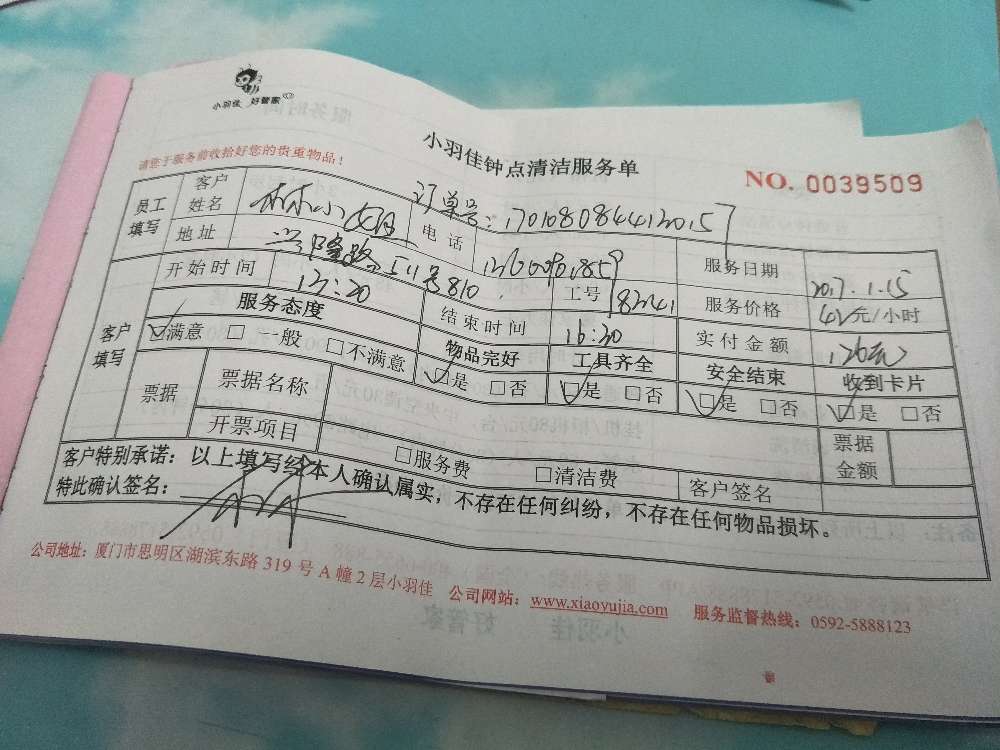 小羽佳 好管家
小羽佳钟点清洁服务单
请您于服务前收拾好您的贵重物品！
NO. 0039509
订单号：1701080844120157
员工填写 客户姓名 林小姐 电话 服务日期 2017.1.15
地址 兴隆路511号810 工号 服务价格 42元/小时
客户填写 开始时间 13:20 结束时间 16:20 实付金额 126元
服务态度 物品完好 工具齐全 安全结束 收到卡片
☑满意 □一般 □不满意 ☑是 □否 ☑是 □否 ☑是 □否 ☑是 □否
票据 票据名称 票据金额
开票项目 □服务费 □清洁费 客户签名
客户特别承诺：以上填写经本人确认属实，不存在任何纠纷，不存在任何物品损坏。
特此确认签名：
公司地址：厦门市思明区湖滨东路319号A幢2层小羽佳 公司网站：www.xiaoyujia.com 服务监督热线：0592-5888123